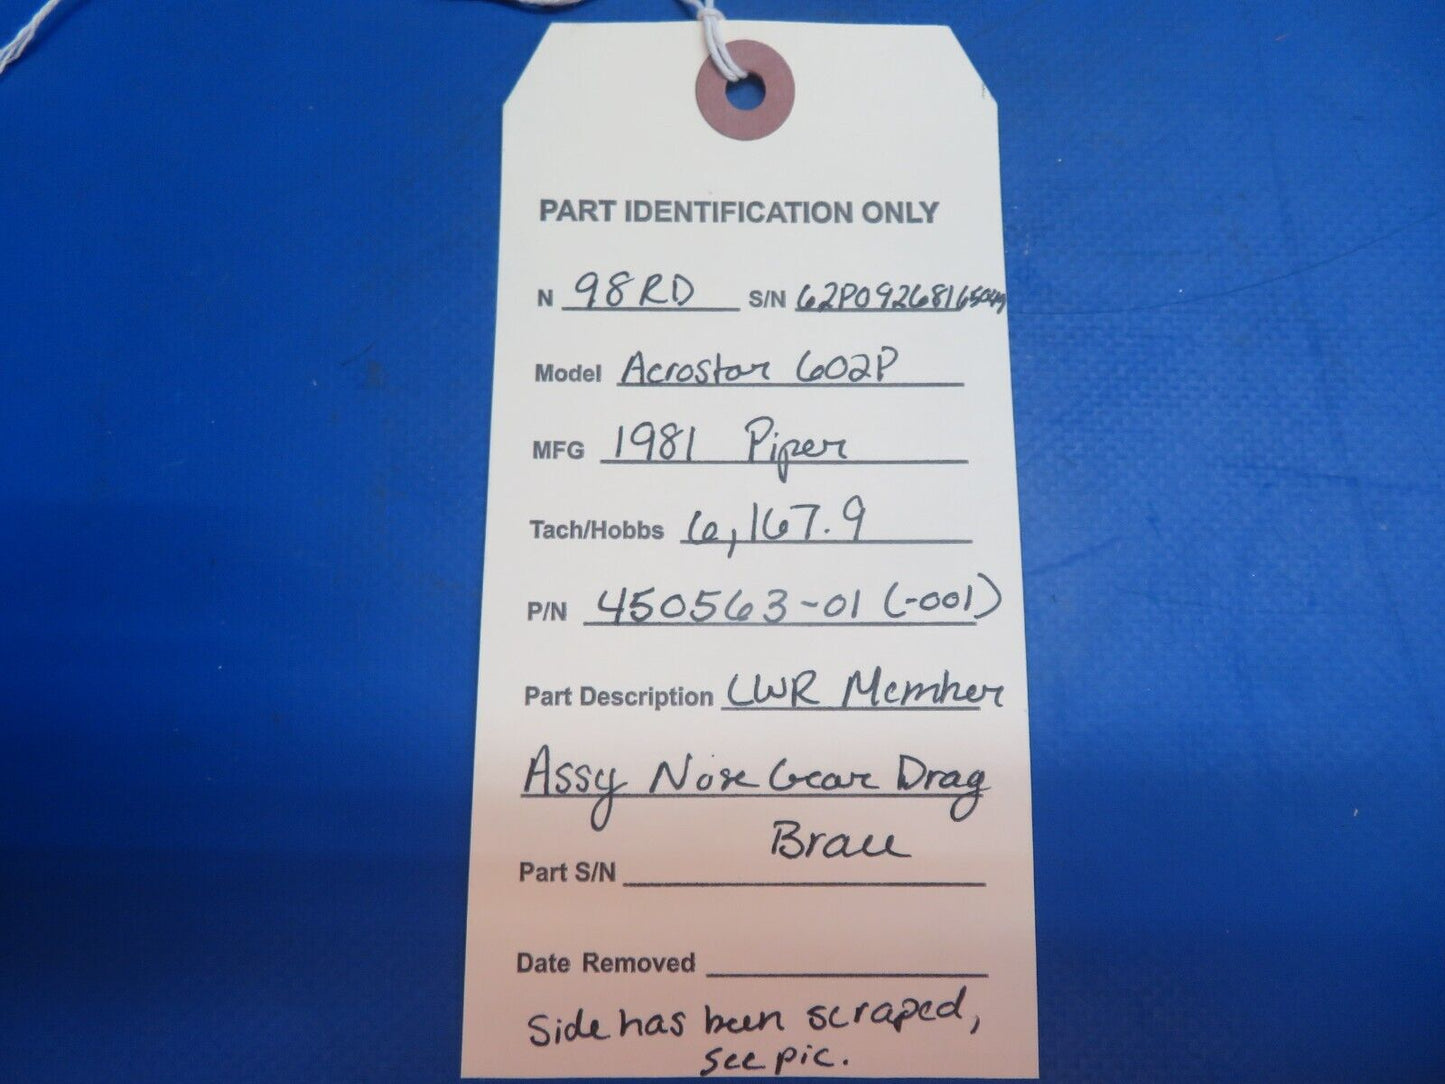 PART IDENTIFICATION ONLY
N 98RD S/N
Model Aerostar 602P
MFG 1981 Piper
Tach/Hobbs 6,167.9
P/N 450563-01 (-001)
Part Description LWR Member
Assy Nose Gear Drag
Brace
Part S/N
Date Removed
Side has been scraped,
see pic.